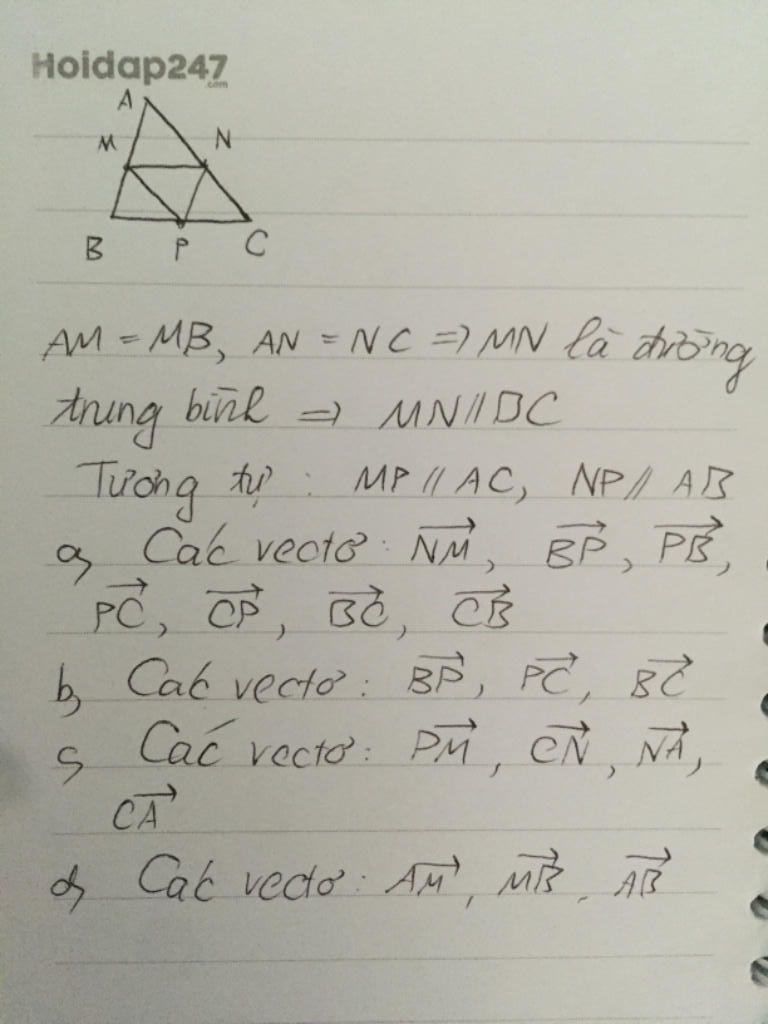 Hoidap247
.com
A
M N
B P C
AM = MB, AN = NC => MN là đường
trung bình => MN // BC
Tương tự : MP // AC, NP // AB
a, Các vectơ : \overrightarrow{NM}, \overrightarrow{BP}, \overrightarrow{PB},
\overrightarrow{PC}, \overrightarrow{CP}, \overrightarrow{BC}, \overrightarrow{CB}
b, Các vectơ : \overrightarrow{BP}, \overrightarrow{PC}, \overrightarrow{BC}
c, Các vectơ : \overrightarrow{PM}, \overrightarrow{CN}, \overrightarrow{NA},
\overrightarrow{CA}
d, Các vectơ : \overrightarrow{AM}, \overrightarrow{MB}, \overrightarrow{AB}